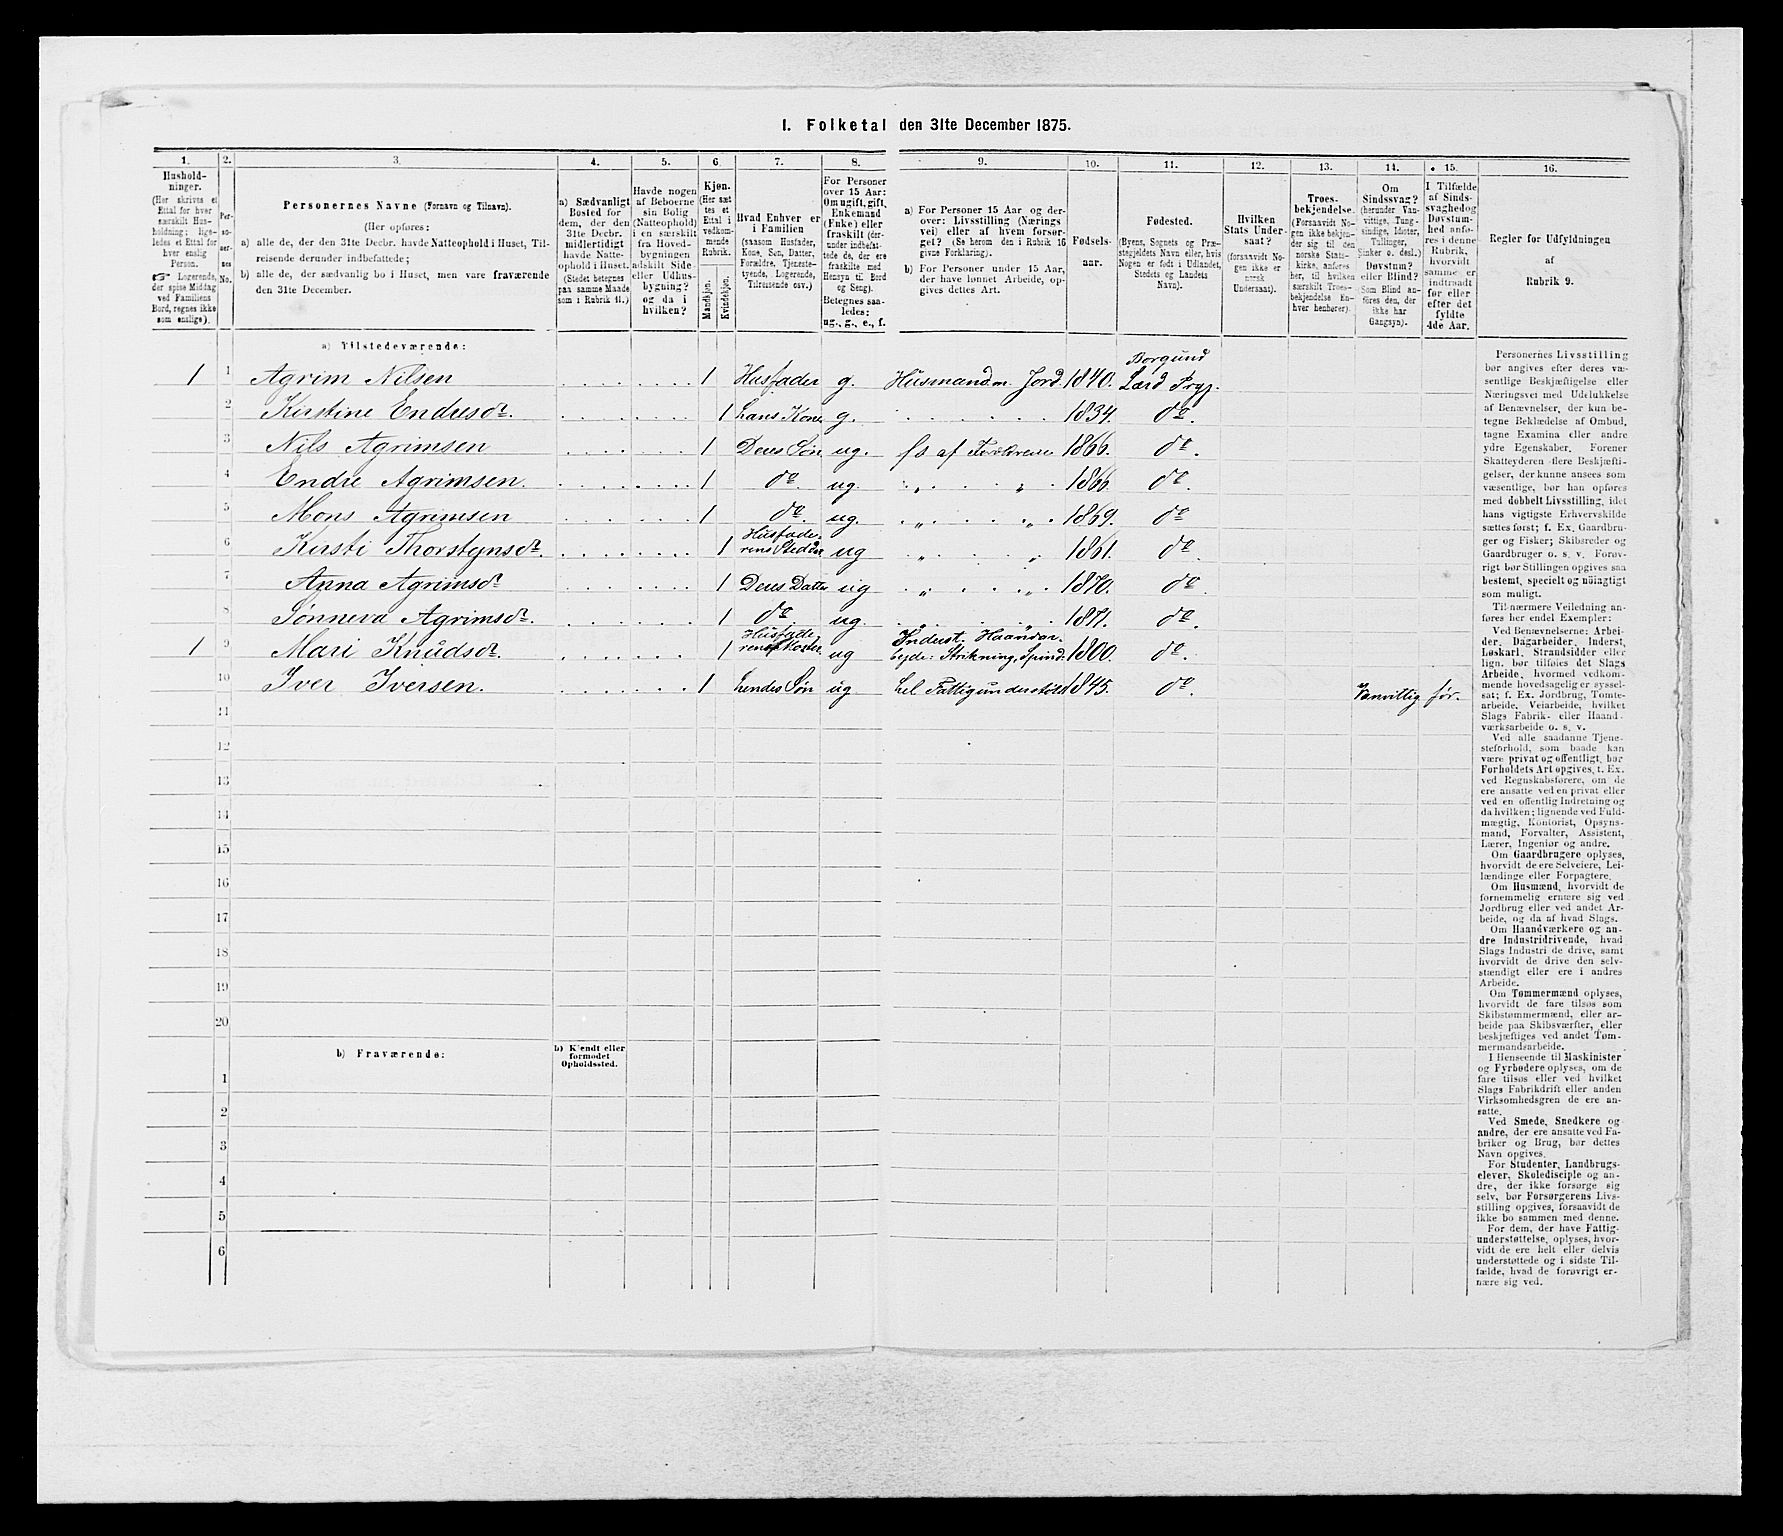 I. Folketal den 31te December 1875.
1. 2. 3. 4. 5. 6. 7. 8. 9. 10. 11. 12. 13. 14. 15. 16.
Hushold-
ninger.
(Her skrives et
Ettal for hver
særskilt Hus-
holdning; lige-
ledes et Ettal for
hver enslig
Person.
☞ Logerende,
der spise Middag
ved Familiens
Bord, regnes ikke
som enslige).
Per-
so-
ner-
nes
No.
Personernes Navne (Fornavn og Tilnavn).
(Her opføres:
a) alle de, der den 31te Decbr. havde Natteophold i Huset, Til-
reisende derunder indbefattede;
b) alle de, der sædvanlig bo i Huset, men vare fraværende
den 31te December.
a) Sædvanligt
Bosted for
dem, der den
31te Decbr.
midlertidigt
havde Natte-
ophold i Huset.
(Stedet betegnes
paa samme Maade
som i Rubrik 11.)
Havde nogen
af Beboerne
sin Bolig
(Natteophold)
i en særskilt
fra Hoved-
bygningen
adskilt Side-
eller Udhus-
bygning?
og da i
hvilken?
Kjøn.
(Her sæt-
tes et
Ettal i
vedkom-
mende
Rubrik.
Mandkjøn.
Kvindekjøn.
Hvad Enhver er
i Familien
(saasom Husfader,
Kone, Søn, Datter,
Forældre, Tjeneste-
tyende, Logerende,
Tilreisende osv.)
For Personer
over 15 Aar:
Om ugift, gift,
Enkemand
(Enke) eller
fraskilt (der-
under indbefat-
tede de, der ere
fraskilte med
Hensyn til Bord
og Seng).
Betegnes saa-
ledes:
ug., g., e., f.
a) For Personer 15 Aar og der-
over: Livsstilling (Nærings
vei) eller af hvem forsør-
get? (Se herom den i Rubrik 16
givne Forklaring).
b) For Personer under 15 Aar,
der have lønnet Arbeide, op-
gives dettes Art.
Fødsels-
aar.
Fødested.
(Byens, Sognets og Præ-
stegjeldets Navn eller, hvis
Nogen er født i Udlandet,
Stedets og Landets
Navn).
Hvilken
Stats Under-
saat?
(forsaavidt No-
gen ikke er
norsk
Undersaat).
Troes-
bekjendelse.
(Forsaavidt No-
gen ikke bekjen-
der sig til den
norske Stats-
kirke, anføres
her, til hvilken
særskilt Troes-
bekjendelse En-
hver henhører).
Om
Sindssvag?
(herunder Van-
vittige, Tung-
sindige, Idioter,
Tullinger,
Sinker o. desl.)
Døvstum?
eller Blind?
(Som Blind an-
føres den, der
ikke har
Gangsyn).
I Tilfælde
af Sinds-
svaghed og
Døvstum-
hed anfø-
res i denne
Rubrik,
hvorvidt
samme er
indtraadt
før eller
efter det
fyldte
4de Aar.
Regler for Udfyldningen
af
Rubrik 9.
a) Tilstedeværende:
1 1 Agrim Nilsen 1 Husfader g. Husmand m. Jord 1840. Borgund
Lærd Prgj.
2 Kirstine Endresdr. 1 hans Kone g. 1834. do.
3 Nils Agrimsen 1 Deres Søn ug. fs af Forældrene 1866. do.
4 Endre Agrimsen. 1 do. ug. „ „ 1866. do.
5 Mons Agrimsen 1 do. ug. „ „ 1869. do
6 Kirsti Thorstensdr. 1 Husfade-
rens Steddr ug „ „ 1861. do
7 Anna Agrimsdr 1 Deres Datter ug „ „ 1870. do.
8 Sønneva Agrimsdr. 1 do. ug. „ „ 1871. do.
1 9 Mari Knudsdr. 1 Husfade-
rens Moder. ug Inderst. Haandar-
beyde: Strikning, Spind. 1800. do.
10 Iver Iversen. 1 hendes Søn ug hel Fattigunderstøtt. 1845. do. Vanvittig før.
11
12
13
14
15
16
17
18
19
20
b) Fraværende:
b) Kjendt eller
formodet
Opholdssted.
1
2
3
4
5
6
Personernes Livsstilling
bør angives efter deres væ-
sentlige Beskjæftigelse eller
Næringsvei med Udelukkelse
af Benævnelser, der kun be-
tegne Beklædelse af Ombud,
tagne Examina eller andre
ydre Egenskaber. Forener
Skatteyderen flere Beskjæfti-
gelser, der kunne ansees som
væsentlige, bør han opføres
med dobbelt Livsstilling, idet
hans vigtigste Erhvervskilde
sættes først; f. Ex. Gaardbru-
ger og Fisker; Skibsreder og
Gaardbruger o. s. v. Forøv-
rigt bør Stillingen opgives saa
bestemt, specielt og nøiagtigt
som muligt.
Til nærmere Veiledning an-
føres her endel Exempler:
Ved Benævnelserne: Arbei-
der, Dagarbeider, Inderst,
Løskarl, Strandsidder eller
lign. bør tilføies det Slags
Arbeide, hvormed vedkom-
mende hovedsagelig er syssel-
sat; f. Ex. Jordbrug, Tomte-
arbeide, Veiarbeide, hvilket
Slags Fabrik- eller Haand-
værksarbeide o. s. v.
Ved alle saadanne Tjene-
steforhold, som baade kan
være privat og offentligt, bør
Forholdets Art opgives, t. Ex.
ved Regnskabsførere, om de
ere ansatte ved en privat eller
ved en offentlig Indretning og
da hvilken; lignende ved Fuld-
mægtig, Kontorist, Opsyns-
mand, Forvalter, Assistent,
Lærer, Ingeniør og andre.
Om Gaardbrugere oplyses,
hvorvidt de ere Selveiere, Lei-
lændinge eller Forpagtere.
Om Husmænd, hvorvidt de
fornemmelig ernære sig ved
Jordbrug eller ved andet Ar-
beide, og da af hvad Slags.
Om Haandværkere og an-
dre Industridrivende, hvad
Slags Industri de drive, samt
hvorvidt de drive den selv-
stændigt eller ere i andres
Arbeide.
Om Tømmermænd oplyses,
hvorvidt de fare tilsøs som
Skibstømmermænd, eller ar-
beide paa Skibsværfter, eller
beskjæftiges ved andet Tøm-
mermandsarbeide.
I Henseende til Maskinister
og Fyrbødere oplyses, om de
fare tilsøs eller ved hvilket
Slags Fabrikdrift eller anden
Virksomhedsgren de ere an-
satte.
Ved Smede, Snedkere og
andre, der ere ansatte ved Fa-
briker og Brug, bør dettes
Navn opgives.
For Studenter, Landbrugs-
elever, Skoledisciple og an-
dre, der ikke forsørge sig
selv, bør Forsørgerens Livs-
stilling opgives, forsaavidt de
ikke bo sammen med denne.
For dem, der have Fattig-
understøttelse, oplyses, hvor-
vidt de ere helt eller delvis
understøttede og i sidste Til-
fælde, hvad de forøvrigt er-
nære sig ved.